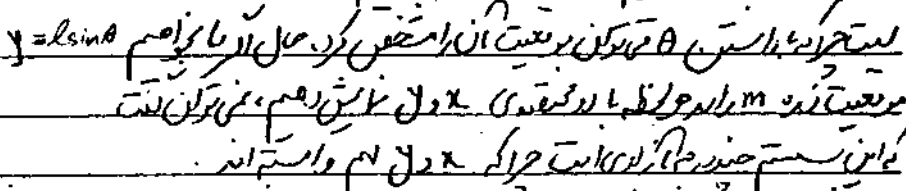 است چرا که با داشتن θ می‌توان موقعیت آن را مشخص کرد. حال اگر ما بخواهیم y = l sinθ
موقعیت ذره m را در هر لحظه با دو مختصه‌ی x و y نمایش دهیم، نمی‌توان گفت
که این سیستم چند درجه آزادی است چرا که x و y به هم وابسته اند.